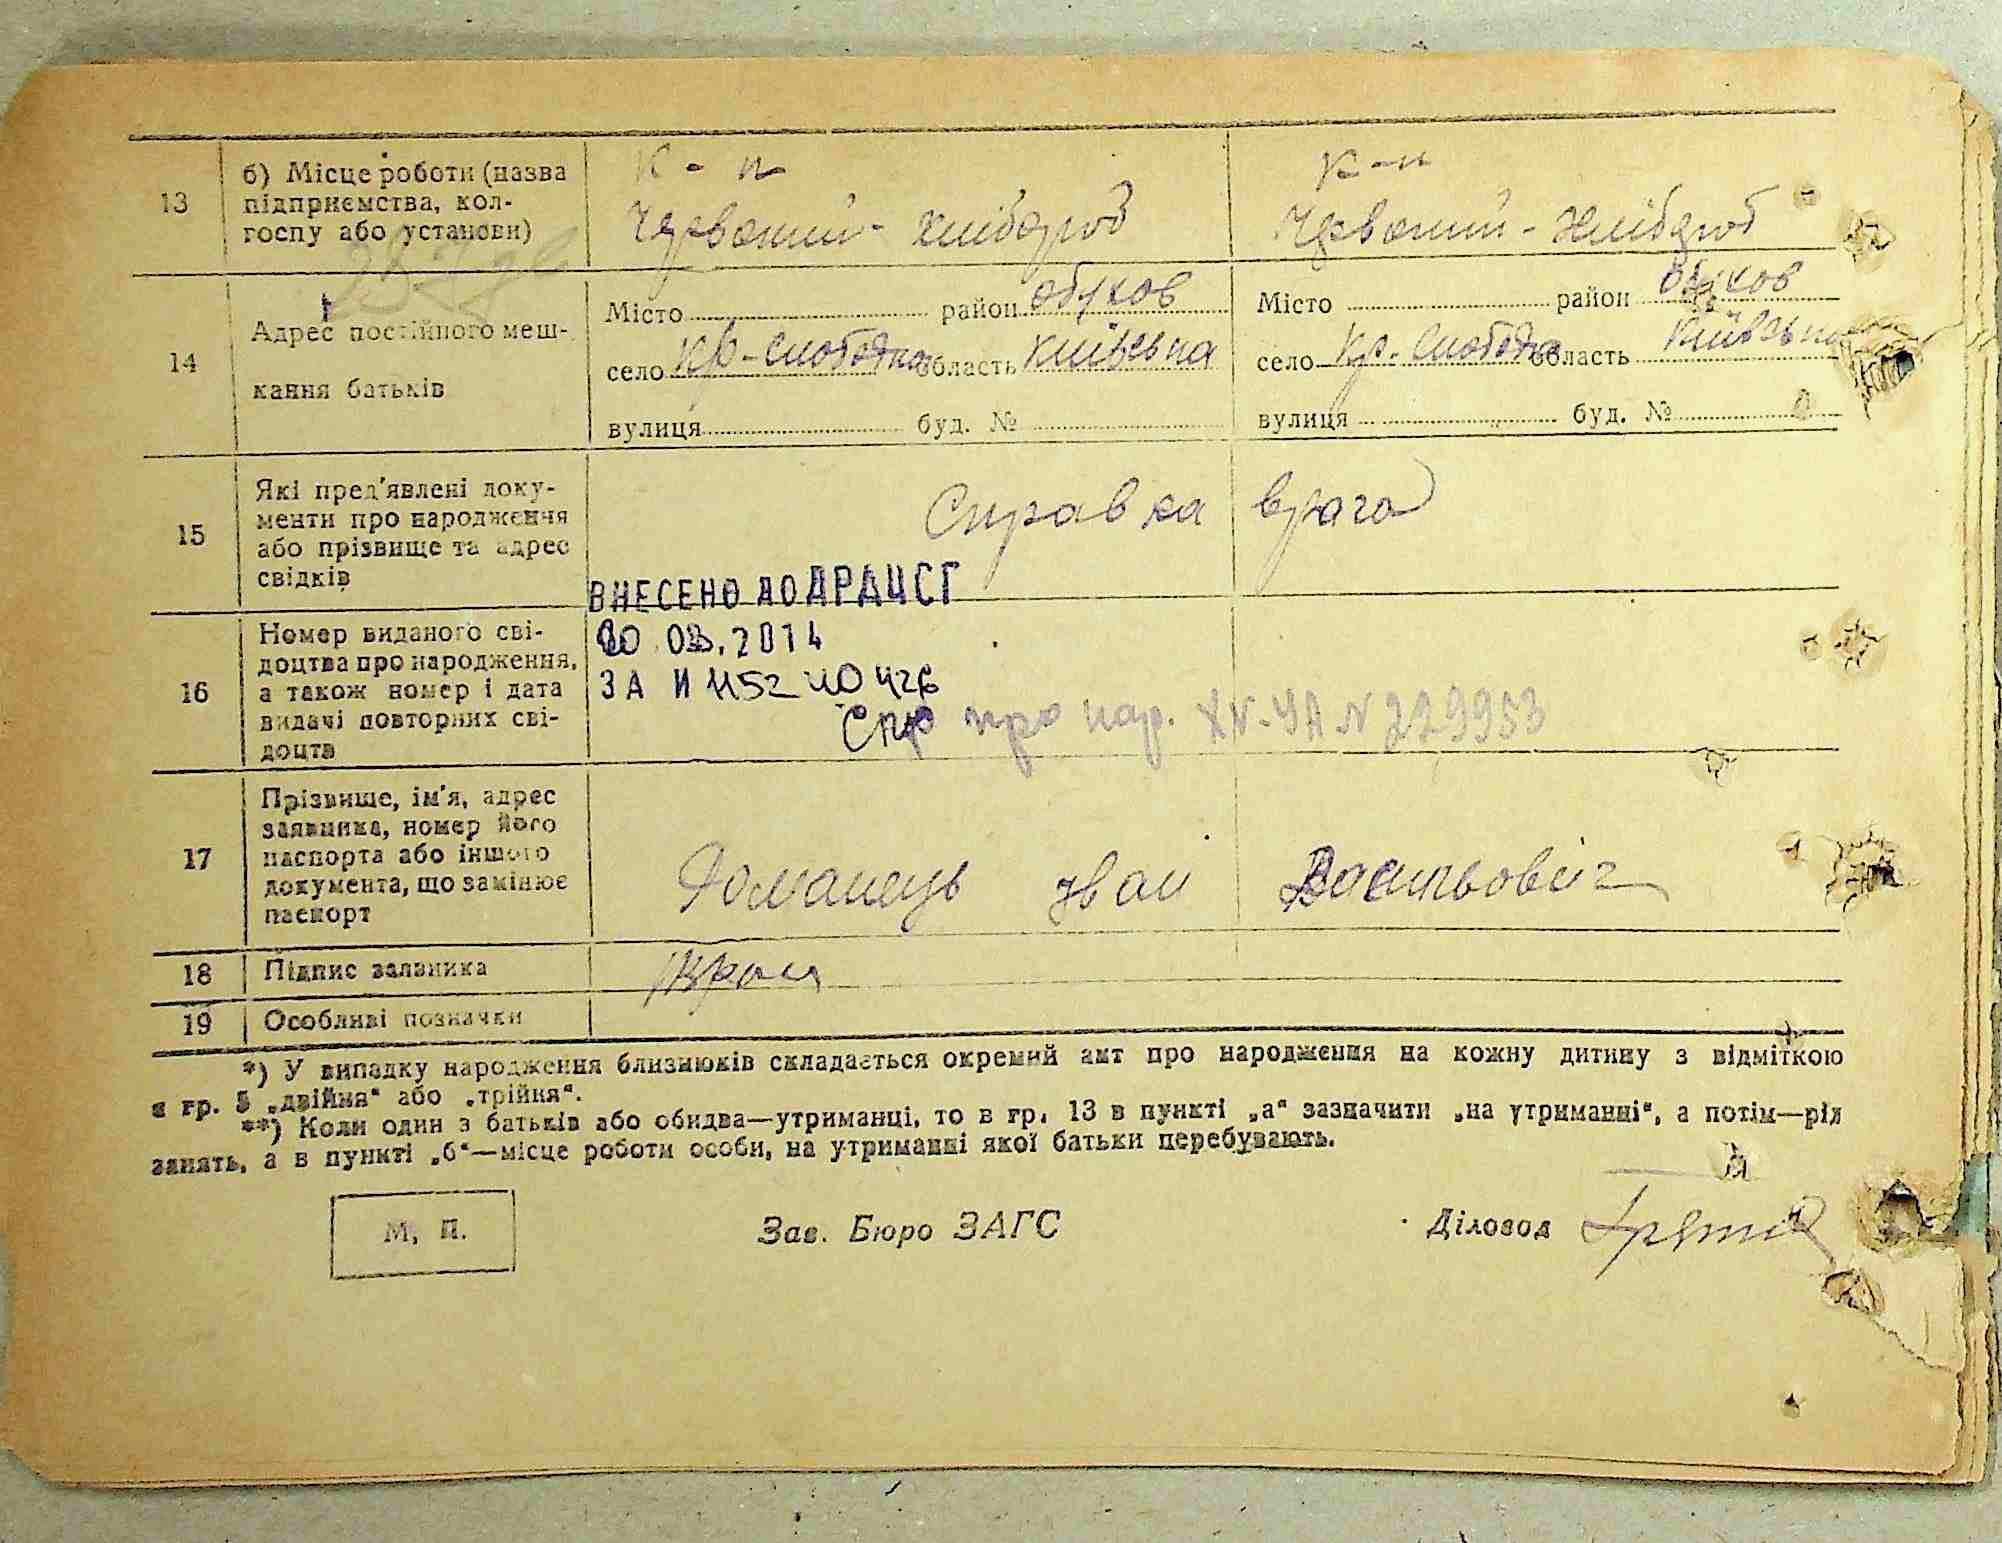 13 б) Місце роботи (назва підприємства, колгоспу або установи)
к-п к-п
Червоний - хлібороб Червоний - Хлібороб
14 Адрес постійного мешкання батьків
Місто район Обухов Місто район Обухов
село Кр-Слободка область Київська село Кр. Слободка область Київська
вулиця буд. № вулиця буд. №
15 Які пред'явлені документи про народження або прізвище та адрес свідків
Справка врача
ВНЕСЕНО ДО ДРАЦСГ
16 Номер виданого свідоцтва про народження, а також номер і дата видачі повторних свідоцтв
03.2014
ЗА И 1152
про нар. № 229953
17 Прізвище, ім'я, адрес заявника, номер його паспорта або іншого документа, що замінює паспорт
Романець Іван Васильовіч
18 Підпис заявника
19 Особливі позначки
*) У випадку народження близнюків складається окремий акт про народження на кожну дитину з відміткою
в гр. 5 „двійня“ або „трійня“.
**) Коли один з батьків або обидва—утриманці, то в гр. 13 в пункті „а“ зазначити „на утриманні“, а потім—рід
занять, а в пункті „б“—місце роботи особи, на утриманні якої батьки перебувають.
М. П. Зав. Бюро ЗАГС Діловод